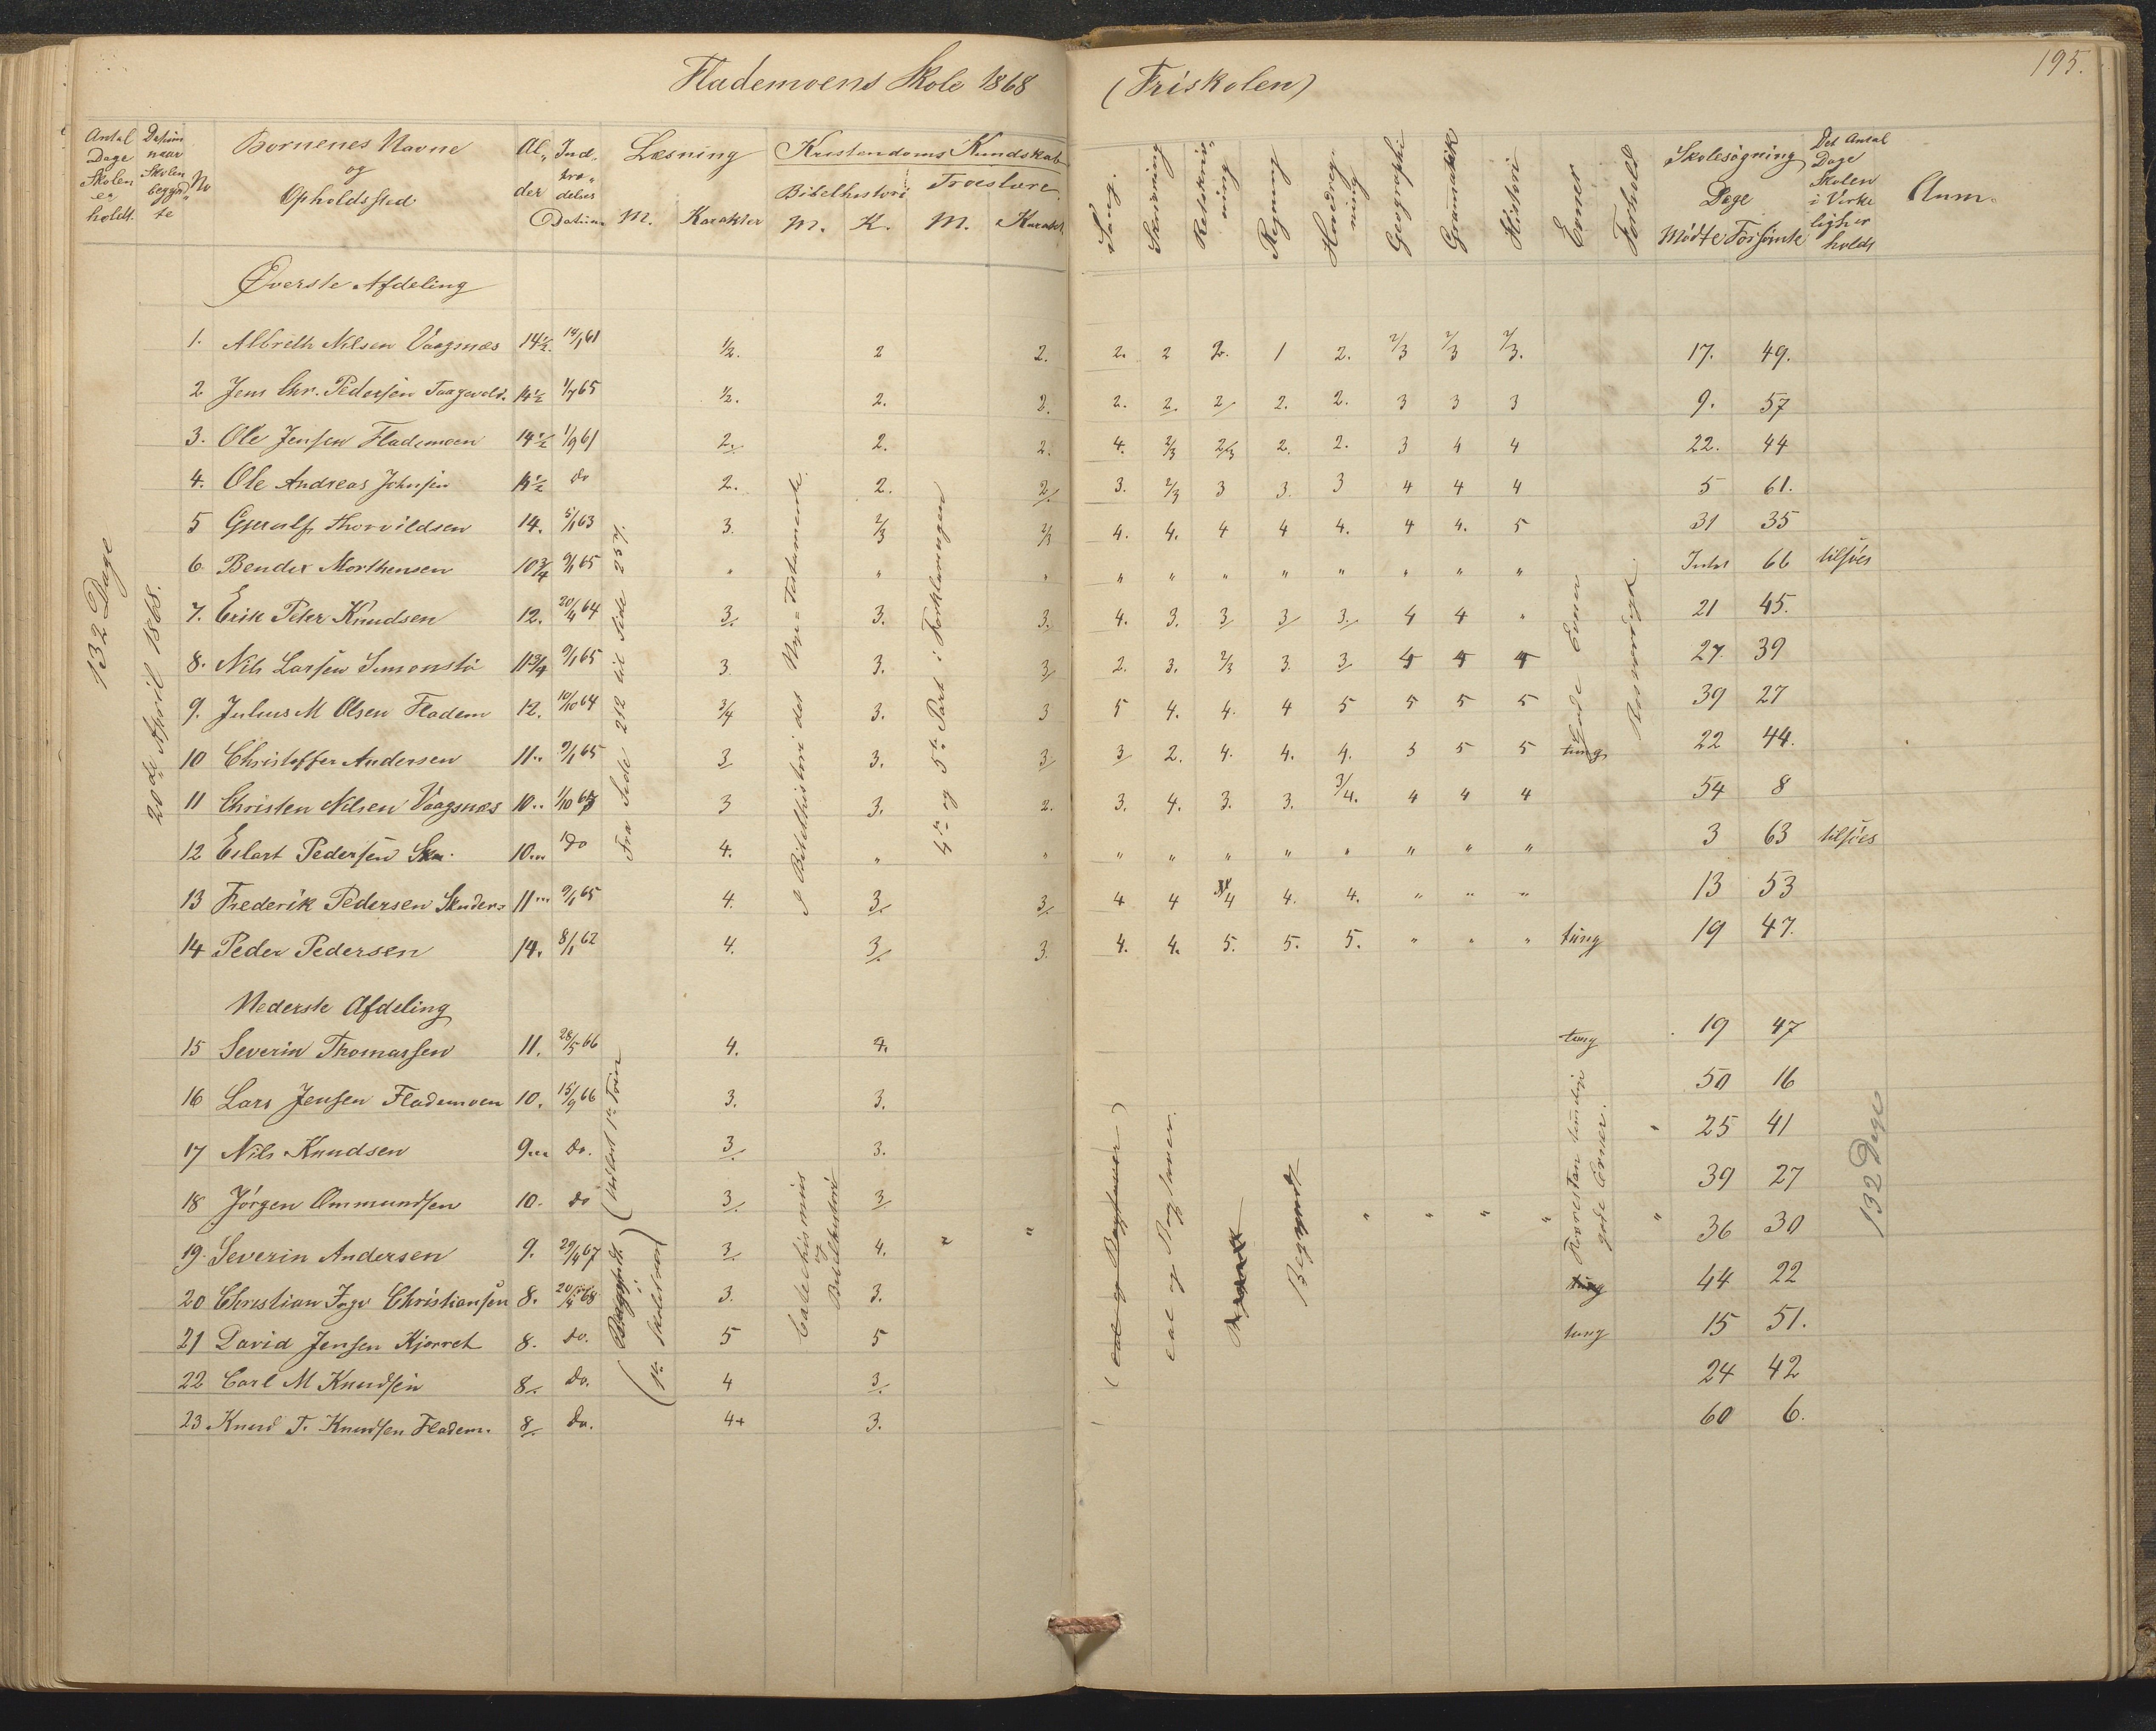 Flademoens Skole 1868 (Friskolen) 195.
Antal Dage Skolen er holdt. Datum naar Skolen begynd„te No Børnenes Navne og Opholdssted Al„der Ind„træ„delses Datum Læsning M. Karakter Kristendoms Kundskab Bibelhistori M. K. Troeslære M. Karakt. Sang. Skrivning Retskriv„ning Regning Hovedreg„ning Geographi Gramatik Historie Evner Forhold Skolesøgning Dage Mødte Forsømte Det Antal Dage Skolen i Virke lighed holdt Anm.
132 Dage
20de April 1868.
Øverste Afdeling
1. Albreth Nilsen Vaagsnæs 14½. 14/1 61 ½. 2 2. 2. 2 2. 1 2. 2/3 2/3 2/3. 17. 49.
2 Jens Chr. Pedersen 14½ 1/7 65 ½. 2. 2. 2. 2. 2/ 2. 2. 3 3 3 9. 57
3. Ole Jensen Flademoen 14½ 1/9 61 2. 2. 2. 4. 2/3 2/3 2. 2. 3 4 4 22. 44
4. Ole Andreas Johnsen 14½ do 2. 2. 2/. 3. 2/3 3 3. 3 4 4 4 5 61.
5 Thorvildsen 14. 5/1 63 3. 2/3 2/3 4. 4. 4 4 4. 4 4. 5 31 35
6. Bendix Morthensen 10¾ 9/1 65 „ „ „ „ „ „ „ „ „ „ „ Intet 66 tilsøes
7. Erik Peter Knudsen 12. 20/4 64 3/. 3. 3. 4. 3. 3/ 3/ 3/. 4 4 „ 21 45.
8. Nils Larsen Simonstø 11¾ 9/1 65 3. 3. 3/ 2. 3. 2/3 3. 3/ 4 4 4 27. 39
9. Julius M Olsen Fladem 12. 10/10 64 3/4 3. 3 5 4. 4. 4 5 5 5 5 39 27
10 Christoffer Andersen 11.. 9/1 65 3/ 3. 3/ 3/ 2. 4. 4. 4. 5 5 5 tung 22 44.
11 Christen Nilsen Vaagsnæs 10.. 1/10 67 3 3. 2. 3. 4. 3. 3. 3/4. 4 4 4 54 8
12 Eilart Pedersen 10... do 4. „ „ „ „ „ „ „ „ „ „ 3 63 tilsøes
13 Frederik Pedersen 11... 9/1 65 4. 3/. 3/. 4 4 4 4. 4. „ „ „ 13 53
14 Peder Pedersen 14. 8/1 62 4. 3/. 3. 4. 4. 5. 5. 5. „ „ „ tung 19 47.
Fra Side 212 til Side 257.
I Bibelhistori det Nye=Testamente.
4de og 5te Part i Forklaringen
Gode Evner
Rosværdigt.
Nederste Afdeling
15 Severin Thomassen 11. 28/5 66 4. 4. tung 19 47
16 Lars Jensen Flademoen 10. 15/9 66 3. 3. 50 16
17 Nils Knudsen 9... do. 3/. 3. „ 25 41
18 Jørgen Ommundsen 10. do 3/. 3/. 39 27
19. Severin Andersen 9. 29/4 67 3/. 4. „ „ „ „ „ „ „ 36 30
20 Christian Inge Christiansen 8. 20/4 68 3. 3. tung 44 22
21 David Jensen Kjørret 8. do. 5 5 tung 15 51.
22 Carl M Knudsen 8/. do. 4 3/. 24 42
23 Knud T. Knudsen Fladem. 8/ do. 4+ 3. 60 6.
Catechismus og Bibelhistori
Begyndt
gode Evner.
132 Dage